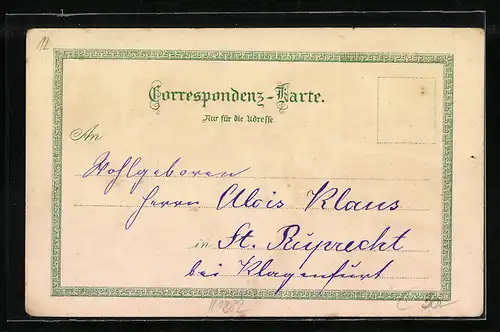 112
Correspondenz-Karte.
Nur für die Adresse
An
Wohlgeboren
Herrn Alois Klaus
in St. Ruprecht
bei Klagenfurt